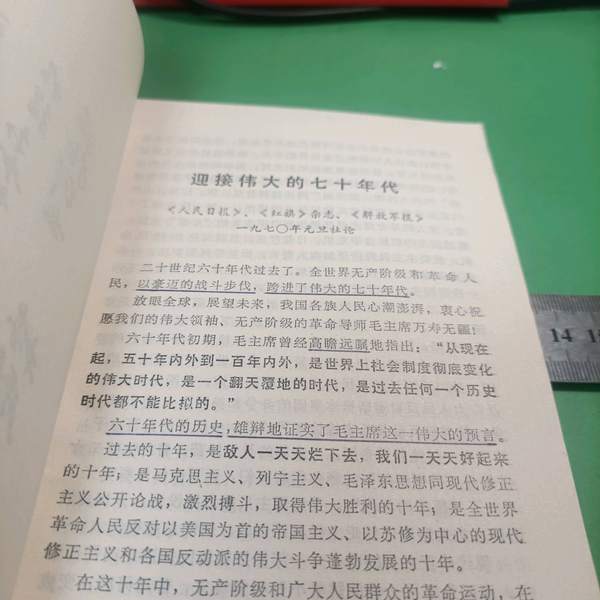 迎接伟大的七十年代
《人民日报》、《红旗》杂志、《解放军报》
一九七〇年元旦社论
二十世纪六十年代过去了。全世界无产阶级和革命人
民，以豪迈的战斗步伐，跨进了伟大的七十年代。
放眼全球，展望未来，我国各族人民心潮澎湃，衷心祝
愿我们的伟大领袖、无产阶级的革命导师毛主席万寿无疆！
六十年代初期，毛主席曾经高瞻远瞩地指出：“从现在
起，五十年内外到一百年内外，是世界上社会制度彻底变化
的伟大时代，是一个翻天覆地的时代，是过去任何一个历史
时代都不能比拟的。”
六十年代的历史，雄辩地证实了毛主席这一伟大的预言。
过去的十年，是敌人一天天烂下去，我们一天天好起来
的十年；是马克思主义、列宁主义、毛泽东思想同现代修正
主义公开论战，激烈搏斗，取得伟大胜利的十年；是全世界
革命人民反对以美国为首的帝国主义、以苏修为中心的现代
修正主义和各国反动派的伟大斗争蓬勃发展的十年。
在这十年中，无产阶级和广大人民群众的革命运动，在
14 15